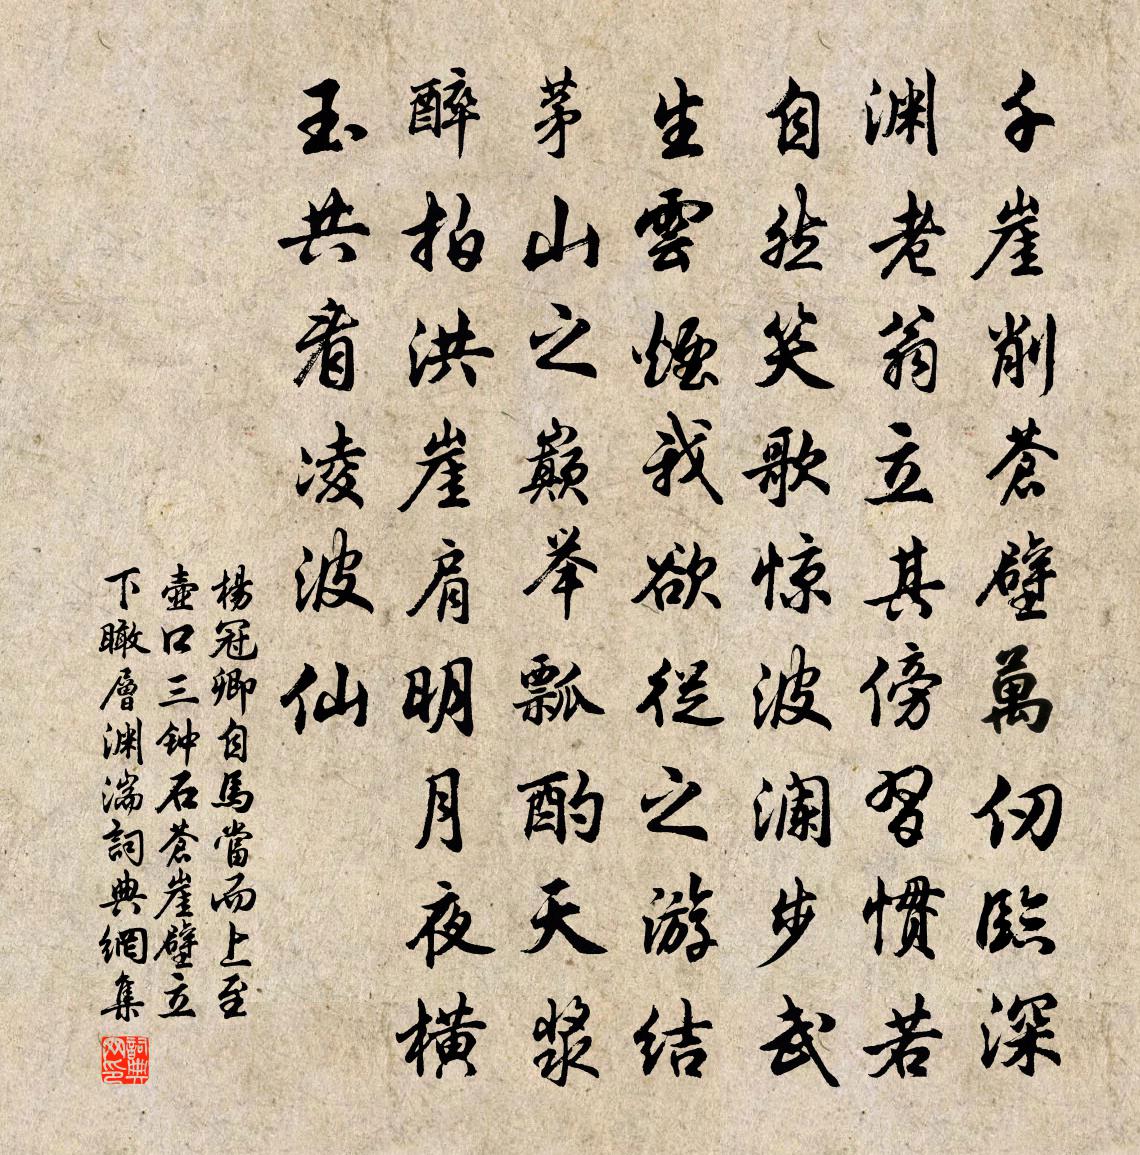 千崖削蒼壁萬仞臨深
渊老翁立其傍習惯若
自然笑歌惊波澜步武
生雲煙我欲從之游结
茅山之巅举瓢酌天漿
醉拍洪崖肩明月夜横
玉共看凌波仙
楊冠卿自馬當而上至
壶口三钟石蒼崖壁立
下瞰層渊湍詞典網集
詞典
网印